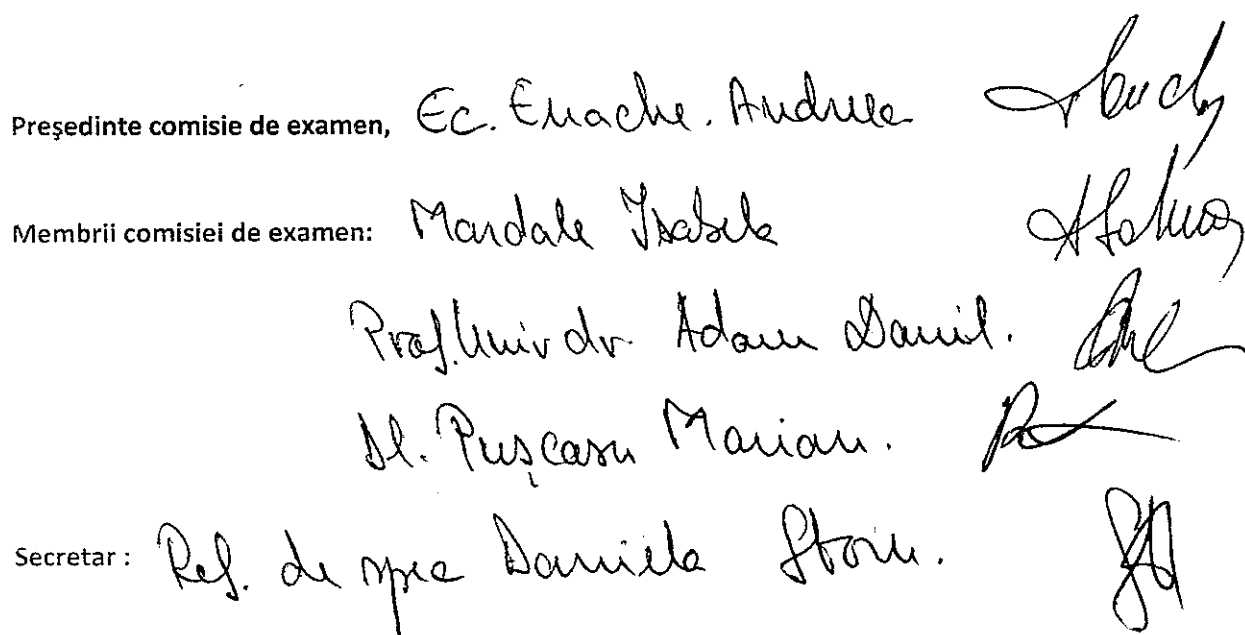 Președinte comisie de examen, Ec. Enache. Andreea
Membrii comisiei de examen: Mandale Isabela
Prof. Univ dr. Adam Daniil.
Dl. Pușcasu Marian.
Secretar : Ref. de spec Daniela Stoin.